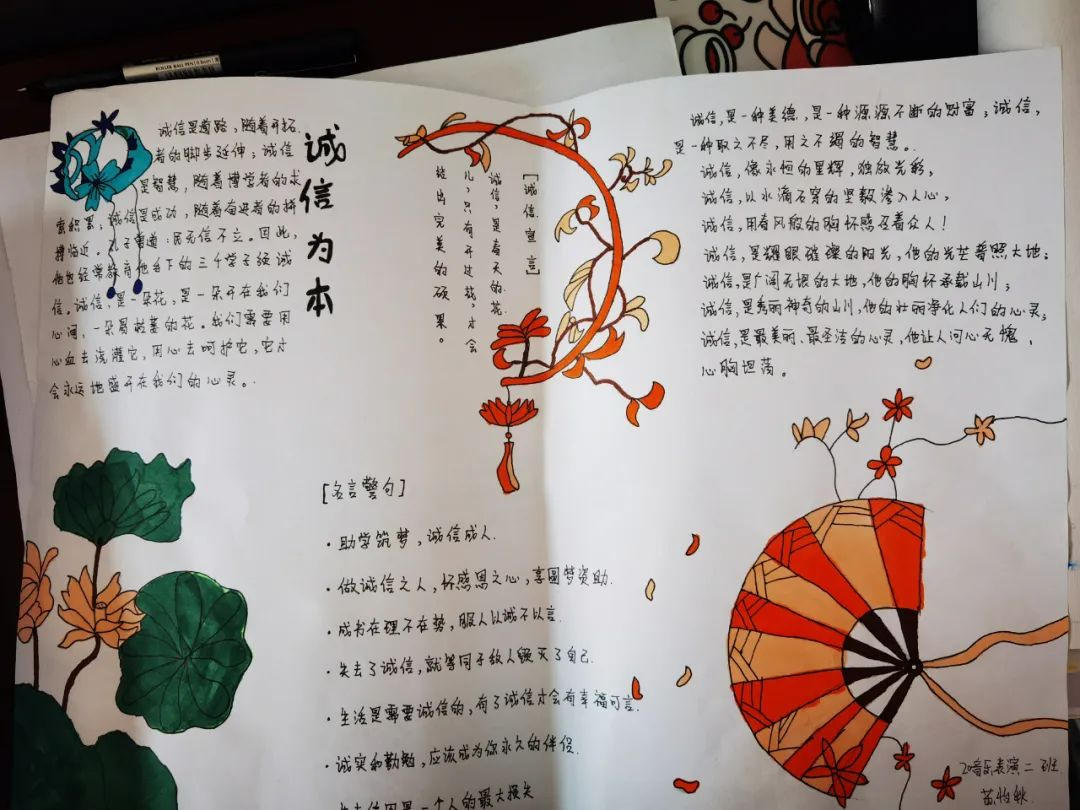 ROLLER BALL PEN
诚信为本
诚信是道路，随着开拓
者的脚步延伸；诚信
是智慧，随着博学者的求
索积累；诚信是成功，随着奋进者的拼
搏临近。孔子曾道：民无信不立。因此，
他也经常教育他名下的三个学子须诚
信。诚信，是一朵花，是一朵开在我们
心间，一朵最娇羞的花。我们需要用
心血去浇灌它，用心去呵护它，它才
会永远地盛开在我们的心灵。
[诚信宣言]
诚信，是春天的花
儿，只有开过花，才会
结出完美的硕果。
诚信，是一种美德，是一种源源不断的财富；诚信，
是一种取之不尽，用之不竭的智慧。
诚信，像永恒的星辉，独放光彩，
诚信，以水滴石穿的坚毅渗入人心，
诚信，用春风般的胸怀感召着众人！
诚信，是耀眼璀璨的阳光，他的光芒普照大地；
诚信，是广阔无垠的大地，他的胸怀承载山川；
诚信，是秀丽神奇的山川，他的壮丽净化人们的心灵；
诚信，是最美丽、最圣洁的心灵，他让人问心无愧，
心胸坦荡。
[名言警句]
·助学筑梦，诚信成人.
·做诚信之人，怀感恩之心，享圆梦资助.
·成书在理不在势，服人以诚不以言.
·失去了诚信，就等同于敌人毁灭了自己.
·生活是需要诚信的，有了诚信才会有幸福可言.
·诚实和勤勉，应该成为你永久的伴侣.
·失去信用是一个人的最大损失
20音乐表演二班